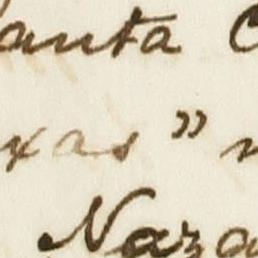 anta C
xas" n
Naza